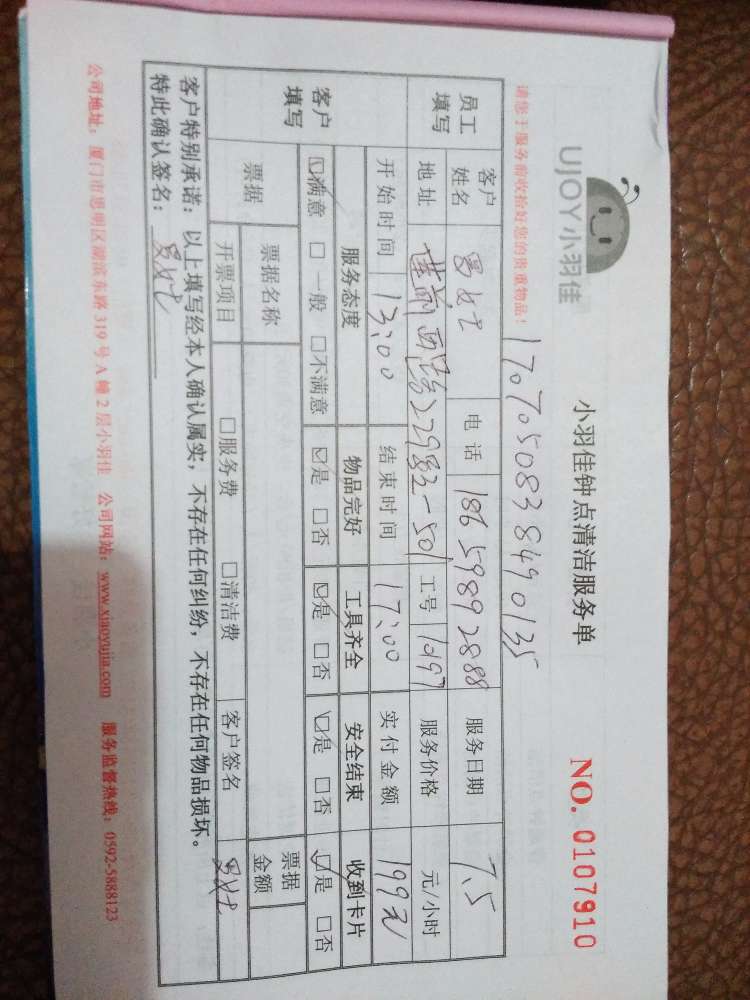 UJOY小羽佳
小羽佳钟点清洁服务单
NO. 0107910
请您于服务前收拾好您的贵重物品！
1707050838490135
员工填写 客户姓名 女士 电话 18659892888 服务日期 7.5
地址 莲前西路229#2-501 工号 1097 服务价格 元/小时
开始时间 13:00 结束时间 17:00 实付金额 199元
客户填写 服务态度 物品完好 工具齐全 安全结束 收到卡片
☑满意 □一般 □不满意 ☑是 □否 ☑是 □否 ☑是 □否 ☑是 □否
票据 票据名称 票据金额
开票项目 □服务费 □清洁费 客户签名 女士
客户特别承诺：以上填写经本人确认属实，不存在任何纠纷，不存在任何物品损坏。
特此确认签名： 女士
公司地址：厦门市思明区湖滨东路319号A幢2层小羽佳 公司网站：www.xiaoyujia.com 服务监督热线：0592-5888123